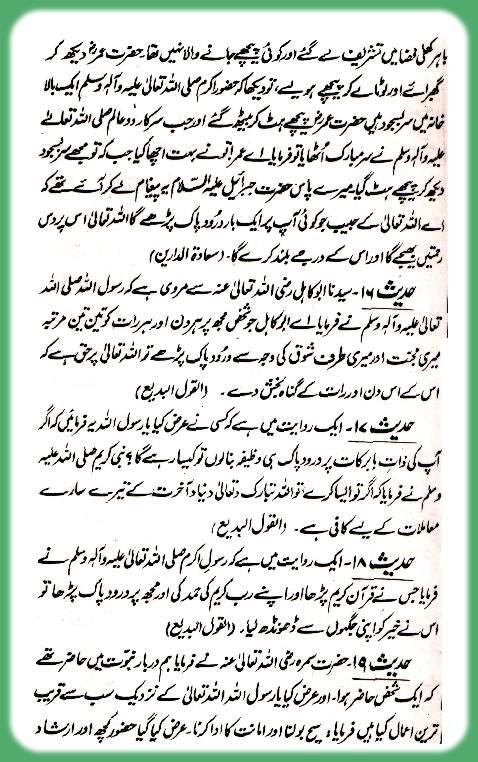 باہر کھلی فضا میں تشریف لے گئے اور کوئی پیچھے جانے والا نہیں تھا۔ حضرت عمرؓ دیکھ کر
گھبرائے اور لوٹا لے کر پیچھے ہولیے، تو دیکھا کہ حضور اکرم صلی اللہ تعالیٰ علیہ وآلہٖ وسلم ایک بالا
خانہ میں سربسجود ہیں حضرت عمرؓ پیچھے ہٹ کر بیٹھ گئے اور جب سرکار دو عالم صلی اللہ تعالےٰ
علیہ وآلہٖ وسلم نے سر مبارک اٹھایا تو فرمایا۔ اے عمر! تو نے بہت اچھا کیا جب کہ تو مجھے سربسجود
دیکھ کر پیچھے ہٹ گیا۔ میرے پاس حضرت جبرائیل علیہ السّلام یہ پیغام لے کر آئے تھے کہ
اے اللہ تعالیٰ کے حبیب جو کوئی آپ پر ایک بار درود پاک پڑھے گا اللہ تعالیٰ اس پر دس
رحمتیں بھیجے گا اور اس کے درجے بلند کرے گا۔ (سعادۃ الدارین)
حدیث ۱۶۔ سیدنا ابو کاہل رضی اللہ تعالیٰ عنہ سے مروی ہے کہ رسول اللہ صلی اللہ
تعالیٰ علیہ وآلہٖ وسلم نے فرمایا۔ اے ابو کاہل جو شخص مجھ پر ہر دن اور ہر رات کو تین تین مرتبہ
میری محبت اور میری طرف شوق کی وجہ سے درود پاک پڑھے تو اللہ تعالیٰ پر حق ہے کہ
اس کے اس دن اور رات کے گناہ بخش دے۔ (القول البدیع)
حدیث ۱۷۔ ایک روایت میں ہے کہ کسی نے عرض کیا یا رسول اللہ یہ فرمائیں کہ اگر
آپ کی ذات بابرکات پر درود پاک ہی وظیفہ بنا لوں تو کیسا رہے گا؟ نبی کریم صلی اللہ علیہ
وسلم نے فرمایا کہ اگر تو ایسا کرے تو اللہ تبارک و تعالیٰ دنیا و آخرت کے تیرے سارے
معاملات کے لیے کافی ہے۔ (القول البدیع)
حدیث ۱۸۔ ایک روایت میں ہے کہ رسول اکرم صلی اللہ تعالیٰ علیہ وآلہٖ وسلم نے
فرمایا جس نے قرآن کریم پڑھا اور اپنے رب کریم کی حمد کی اور مجھ پر درود پاک پڑھا تو
اس نے خیر کو اپنی جگہوں سے ڈھونڈھ لیا۔ (القول البدیع)
حدیث ۱۹۔ حضرت سمرہ رضی اللہ تعالیٰ عنہ نے فرمایا ہم دربار نبوت میں حاضر تھے
کہ ایک شخص حاضر ہوا۔ اور عرض کیا یا رسول اللہ اللہ تعالیٰ کے نزدیک سب سے قریب
ترین اعمال کیا ہیں فرمایا: سچ بولنا اور امانت کا ادا کرنا۔ عرض کیا گیا حضور کچھ اور ارشاد